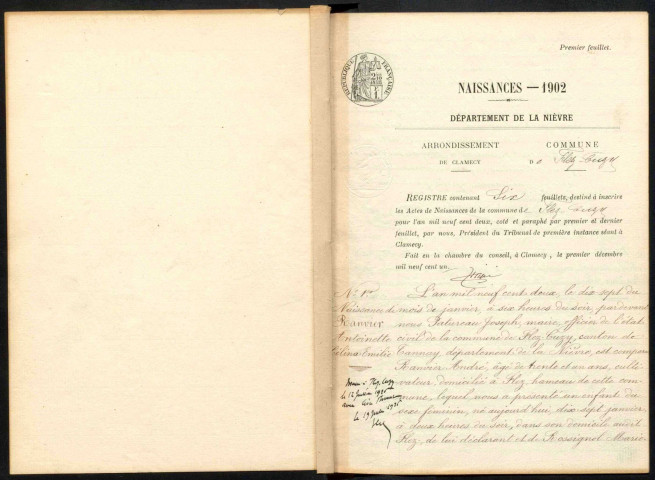 Premier feuillet.
RÉPUBLIQUE FRANÇAISE
NAISSANCES — 1902
DÉPARTEMENT DE LA NIÈVRE
ARRONDISSEMENT
DE CLAMECY
COMMUNE
D e Flez-Cuzy
REGISTRE contenant Six feuillets, destiné à inscrire
les Actes de Naissances de la commune de Flez Cuzy
pour l'an mil neuf cent deux, coté et paraphé par premier et dernier
feuillet, par nous, Président du Tribunal de première instance séant à
Clamecy.
Fait en la chambre du conseil, à Clamecy, le premier décembre
mil neuf cent un.
N° 1er
Naissance de
Ranvier
Antoinette
Célina Emilie
L'an mil neuf cent deux, le dix sept du
mois de janvier, à six heures du soir, par devant
nous Joseph, maire, officier de l'état
civil de la commune de Flez Cuzy, canton de
Tannay, département de la Nièvre, est comparu
Ranvier André, âgé de trente et un ans, culti
vateur, domicilié à Flez, hameau de cette com
mune, lequel nous a présenté un enfant du
sexe féminin, né aujourd'hui, dix sept janvier,
à deux heures du soir, dans son domicile audit
Flez, de lui déclarant et de Rossignol Marie
à Flez Cuzy
le 12 juin 1925
avec
le 19 juin 1925